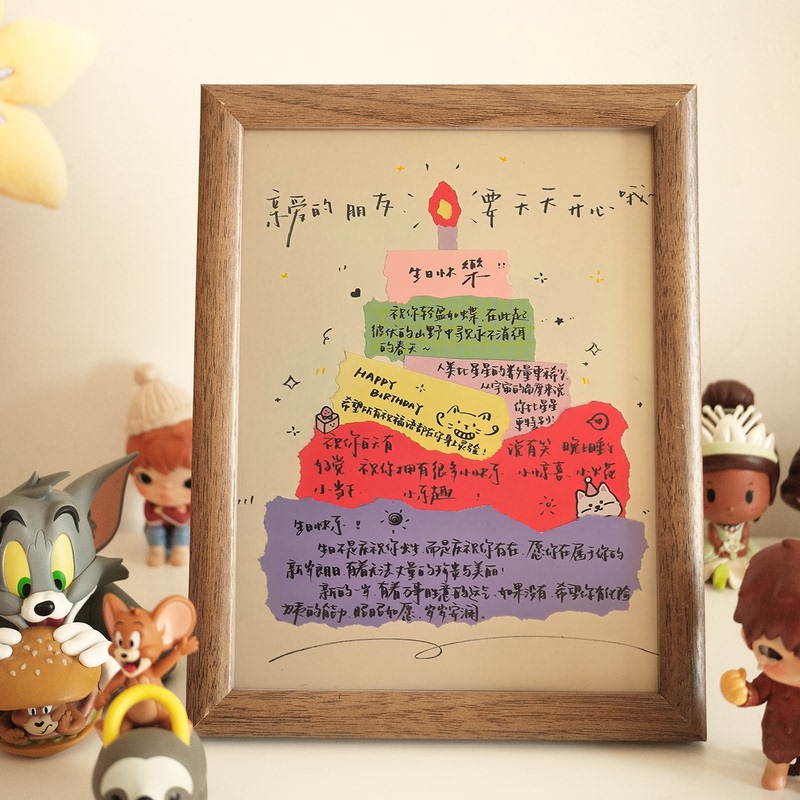 亲爱的朋友 要天天开心哦~
生日快樂
祝你轻盈如蝶,在此起
彼伏的山野中寻见永不消弭
的春天~
人类比星星的数量更稀少
从宇宙的角度来说
你比星星
更特别!
HAPPY
BIRTHDAY
希望所有祝福语都在你身上灵验!
祝你日有 说有笑 晚上睡个
好觉 祝你拥有很多小快乐 小惊喜 小火花
小当下 小乐趣 !
生日快乐!
生日不是庆祝你出生,而是庆祝你存在,愿你在属于你的
新岁朝日,有着无法丈量的珍贵与美丽!
新的一岁,有着万事胜意的运气,如果没有,希望你有化险
为夷的能力,眼眼如愿,岁岁安澜。